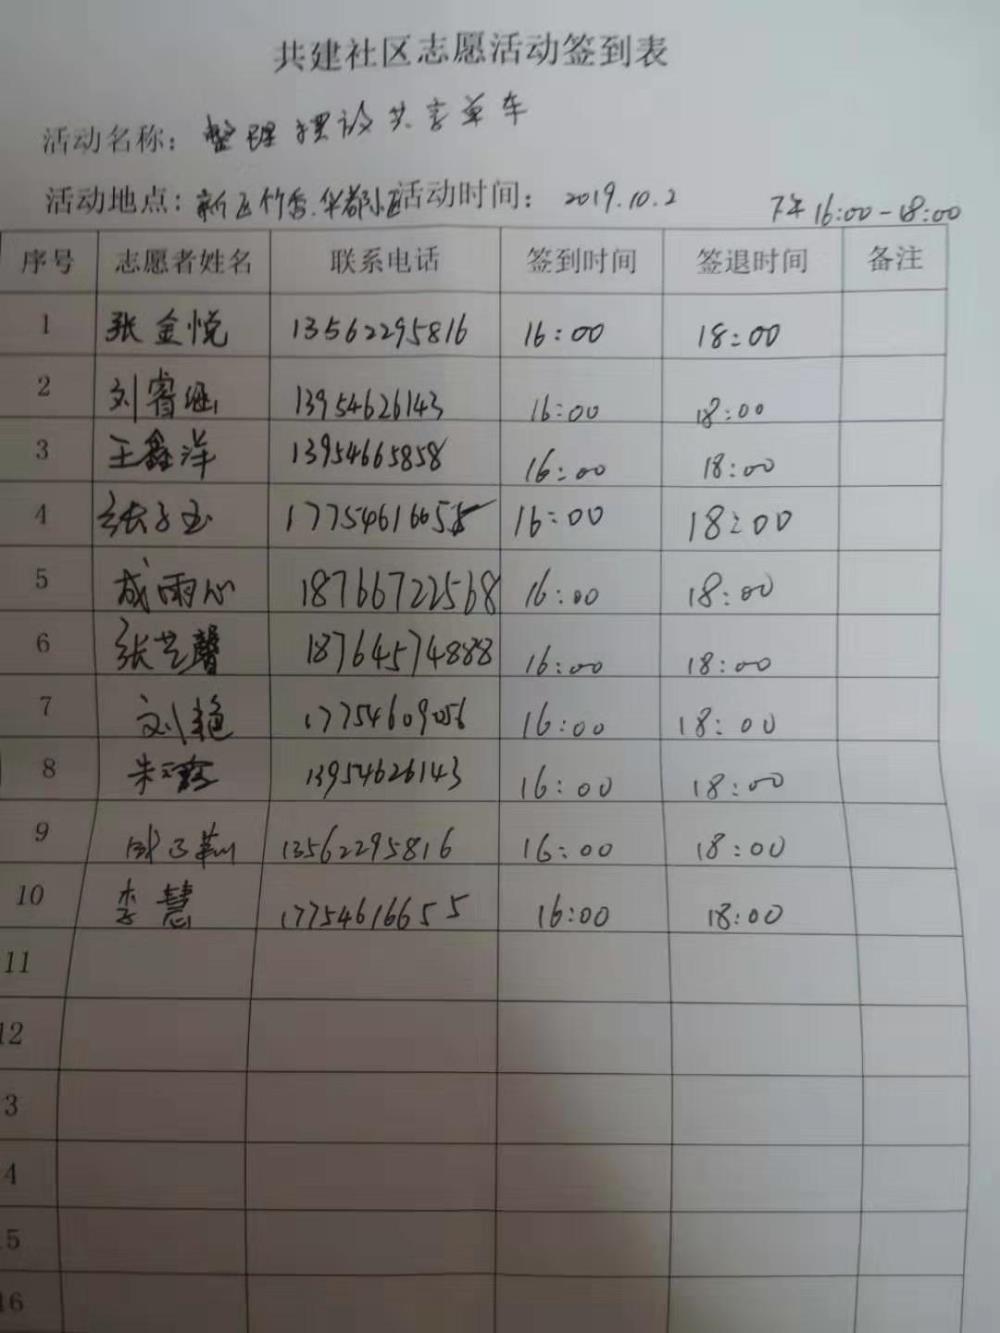 共建社区志愿活动签到表
活动名称：整理摆放共享单车
活动地点：新区竹香.华都小区活动时间：2019.10.2 下午16:00-18:00
序号 志愿者姓名 联系电话 签到时间 签退时间 备注
1 张金悦 13562295816 16:00 18:00
2 刘睿涵 13954626143 16:00 18:00
3 王鑫洋 13954665858 16:00 18:00
4 张子玉 17754616655 16:00 18:00
5 成雨心 18766722568 16:00 18:00
6 张艺馨 18764574888 16:00 18:00
7 刘艳 17754609056 16:00 18:00
8 朱 13954626143 16:00 18:00
9 13562295816 16:00 18:00
10 李慧 17754616655 16:00 18:00
11
12
3
4
5
16